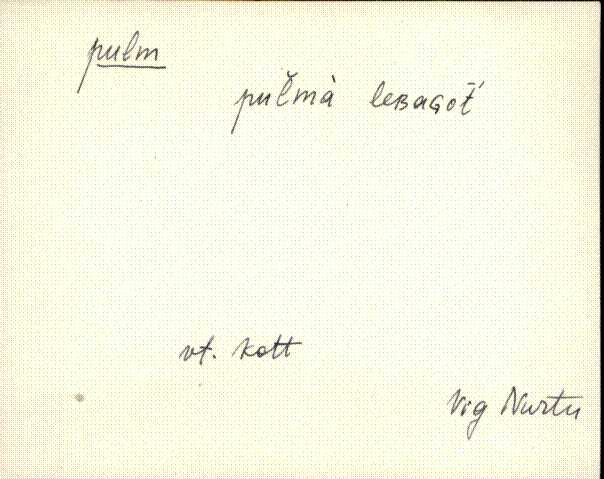 pulm
pul̆mà leʙaɢot́
vt. kott
Vig Nurtu